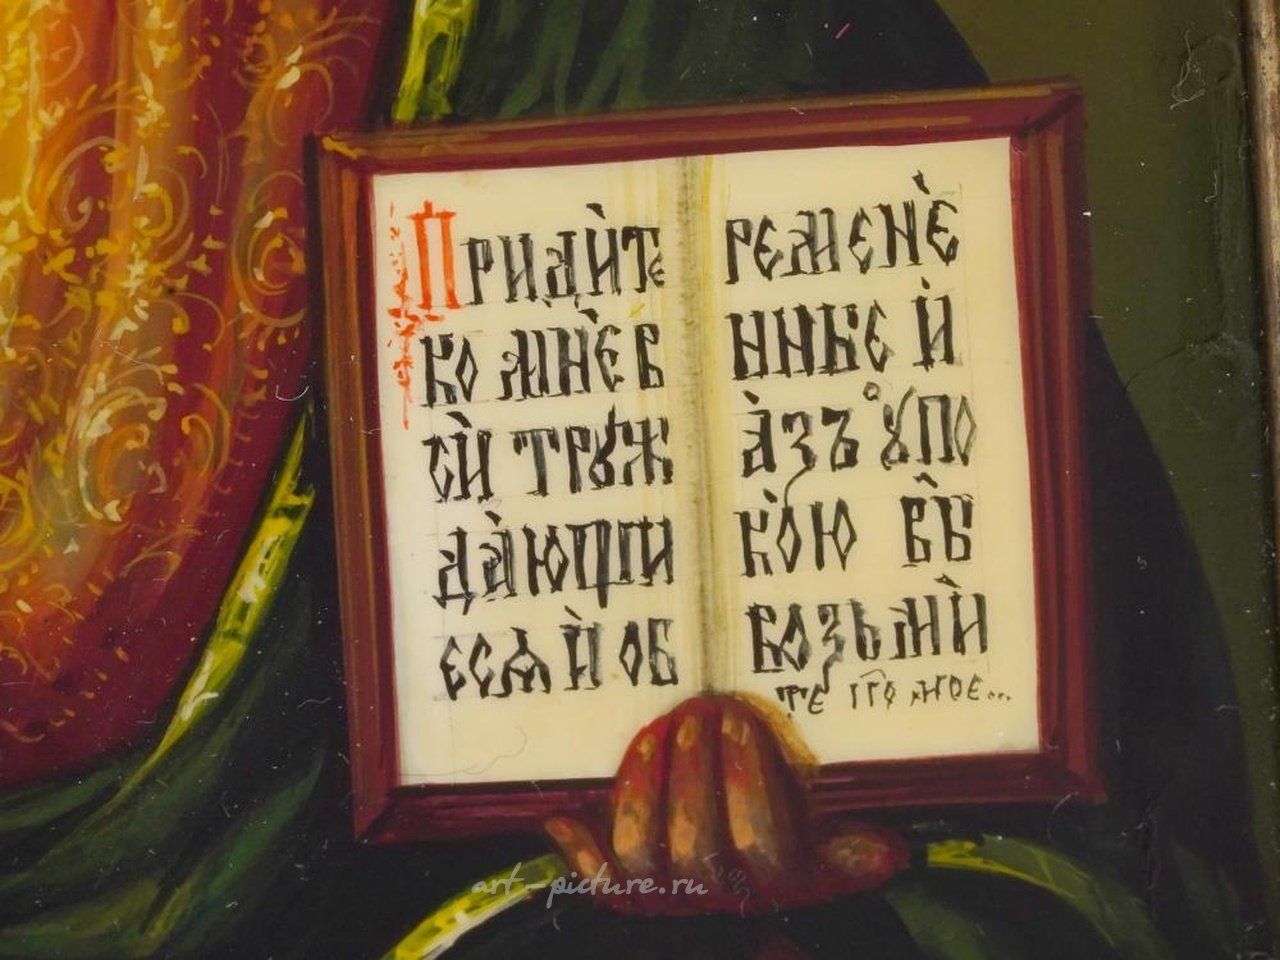 Придѝте
ко мнѐ в
сѝ трꙋж
да̀ющи
есѧ ѝ об
ременѐ
ннїе ѝ
а̀зъ ꙋпо
ко̀ю вы̑
возьмѝ
те иго мое...
art-picture.ru